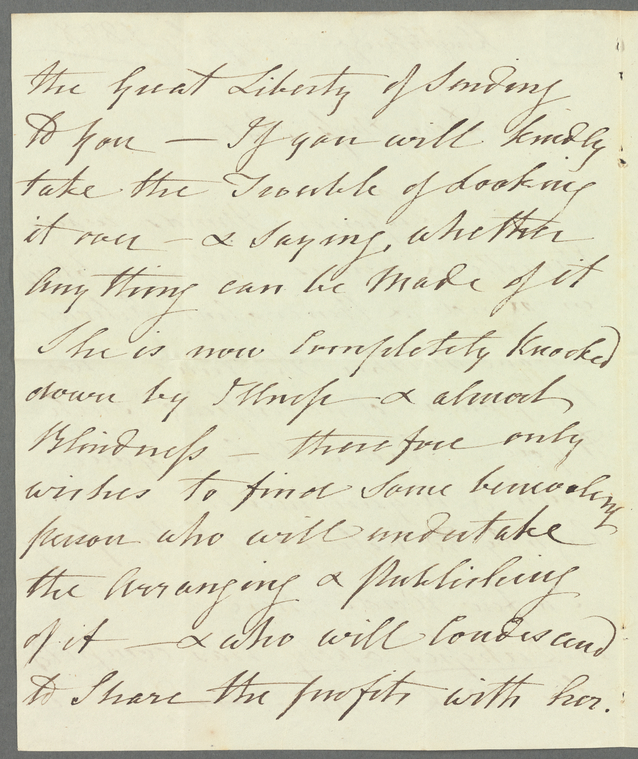 the Great Liberty of Sending
to you — If you will kindly
take the Trouble of Looking
it over — & Saying, whether
Any thing can be Made of it
She is now Completely Knocked
down by Illness & almost
Blindness — therefore only
wishes to find Some benevolent
person who will undertake
the Arranging & Publishing
of it — & who will Condescend
to Share the profits with her.